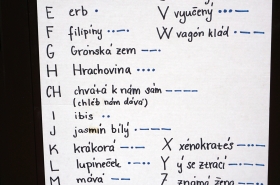 E erb •
F filipíny ••—•
G Grónská zem ——•
H Hrachovina ••••
CH chvátá k nám sám ————
(chléb nám dává)
I ibis ••
J jasmín bílý •———
K krákorá —•—
L lupíneček •—••
M mává ——
V vyučený •••—
W wagón klád •——
X xénokratés —••—
Y ý se ztrácí —•——
Z známá žena ——••